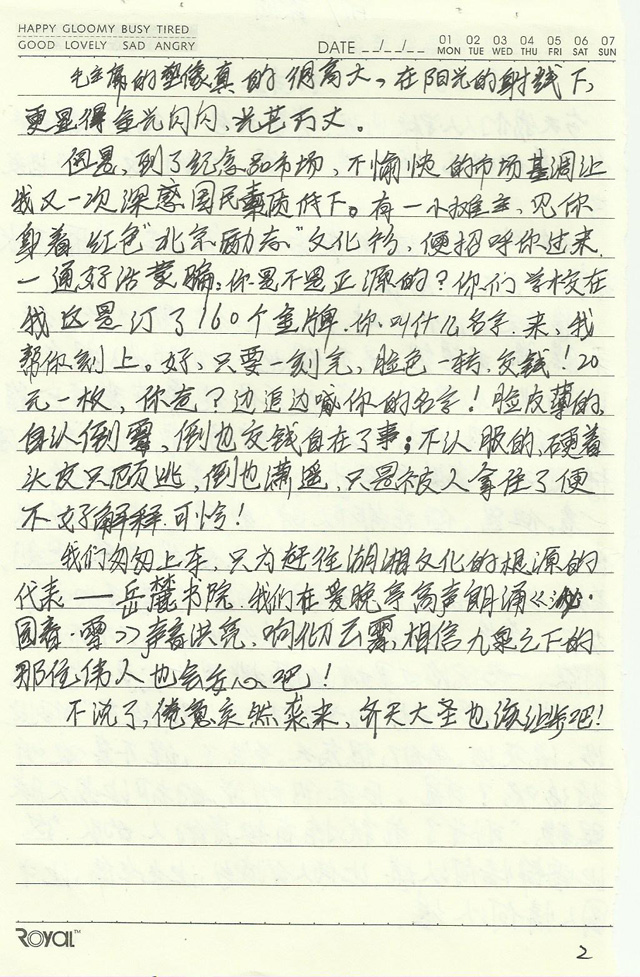 HAPPY GLOOMY BUSY TIRED
GOOD LOVELY SAD ANGRY
DATE _/_/_
01 02 03 04 05 06 07
MON TUE WED THU FRI SAT SUN
毛主席的塑像真的很高大。在阳光的射线下,
更显得金光闪闪,光芒万丈。
但是,到了纪念品市场,不愉快的市场基调让
我又一次深感国民素质低下。有一小摊主,见你
身着红色"北京励志"文化衫,便招呼你过来.
一通好浩蒙骗:你是不是正源的?你们学校在
我这是订了160个金牌.你叫什么名字.来,我
帮你刻上。好,只要一刻完,脸色一转,交钱!20
元一枚,你走?边追边喊你的名字!脸皮薄的,
自认倒霉,倒也交钱自在了事;不认服的,硬着
头皮只顾逃,倒也潇遥,只是被人拿住了便
不好解释.可怜!
我们匆匆上车,只为赶往湖湘文化的根源的
代表——岳麓书院.我们在爱晚亭高声朗诵《沁·
园春·雪》声音洪亮,响彻云霄,相信九泉之下的
那位伟人也会安心吧!
不说了,倦意突然袭来,齐天大圣也该让步吧!
ROYAL™
2